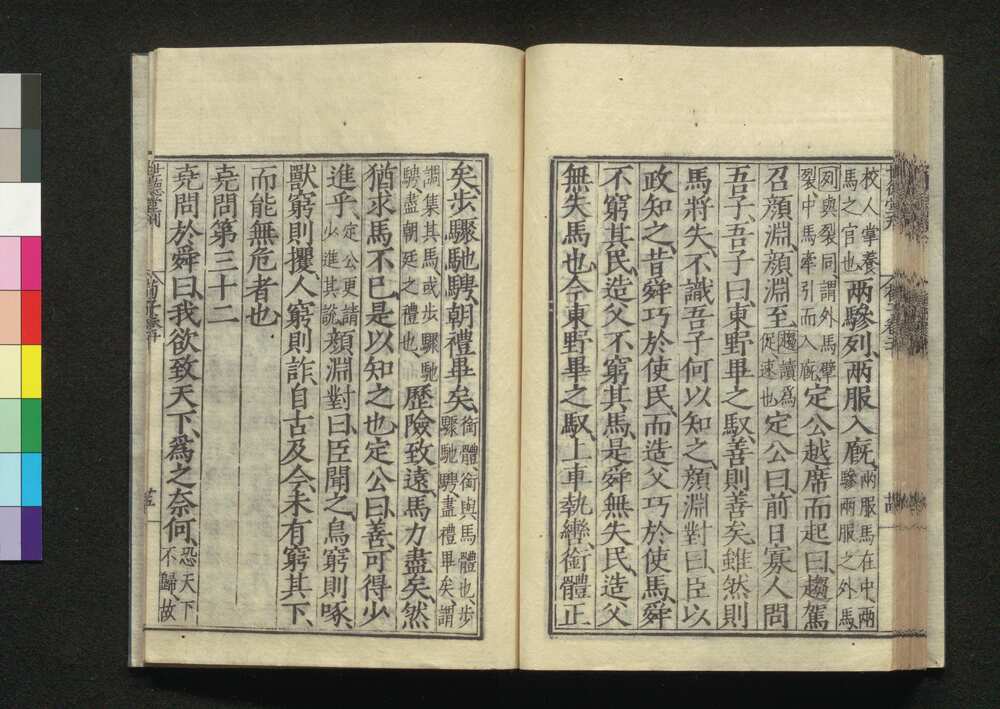 校人掌養
馬之官也
兩驂列、兩服入廐、
兩服馬在中、兩
驂兩服之外馬、
列與裂同、謂外馬擘
裂中馬牽引而入廐、
定公越席而起曰、趨駕
召顔淵、顔淵至、
趨讀爲
促速也
定公曰、前日寡人問
吾子、吾子曰、東野畢之馭、善則善矣、雖然則
馬將失、不識吾子何以知之、顔淵對曰、臣以
政知之、昔舜巧於使民、而造父巧於使馬、舜
不窮其民、造父不窮其馬、是舜無失民、造父
無失馬也、今東野畢之馭、上車執轡、銜體正
矣、步驟馳騁、朝禮畢矣、
銜體、銜與馬體也、步
驟馳騁、盡禮畢矣、謂
調集其馬或步驟馳
騁、盡朝廷之禮也、
歷險致遠、馬力盡矣、然
猶求馬不已、是以知之也、定公曰、善、可得少
進乎、
定公更請
少進其說、
顔淵對曰、臣聞之、鳥窮則啄、
獸窮則攫、人窮則詐、自古及今、未有窮其下、
而能無危者也
堯問第三十二
堯問於舜曰、我欲致天下、爲之奈何、
恐天下
不歸、故